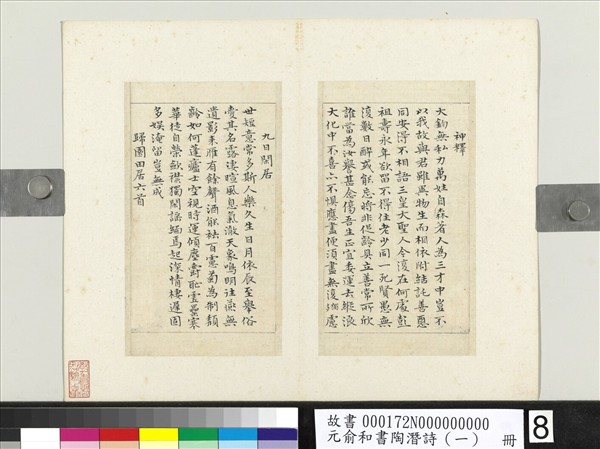 神釋
大鈞無私力萬姓自森著人為三才中豈不
以我故與君雖異物生而相依附結託善惡
同安得不相語三皇大聖人今復在何處彭
祖壽永年欲留不得住老少同一死賢愚無
復數日醉或能忘將非促齡具立善常所欣
誰當為汝譽甚念傷吾生正宜委運去縱浪
大化中不喜亦不懼應盡便須盡無復獨慮
九日閒居
世短意常多斯人樂久生日月依辰至舉俗
愛其名露淒暄風息氣澈天象明往燕無
遺影來雁有餘聲酒能祛百慮菊為制頹
齡如何蓬廬士空視時運傾塵爵恥虛罍寒
華徒自榮斂襟獨閒謠緬焉起深情棲遲固
多娛淹留豈無成
歸園田居六首
故書000172N000000000
元俞和書陶潛詩(一) 冊
8